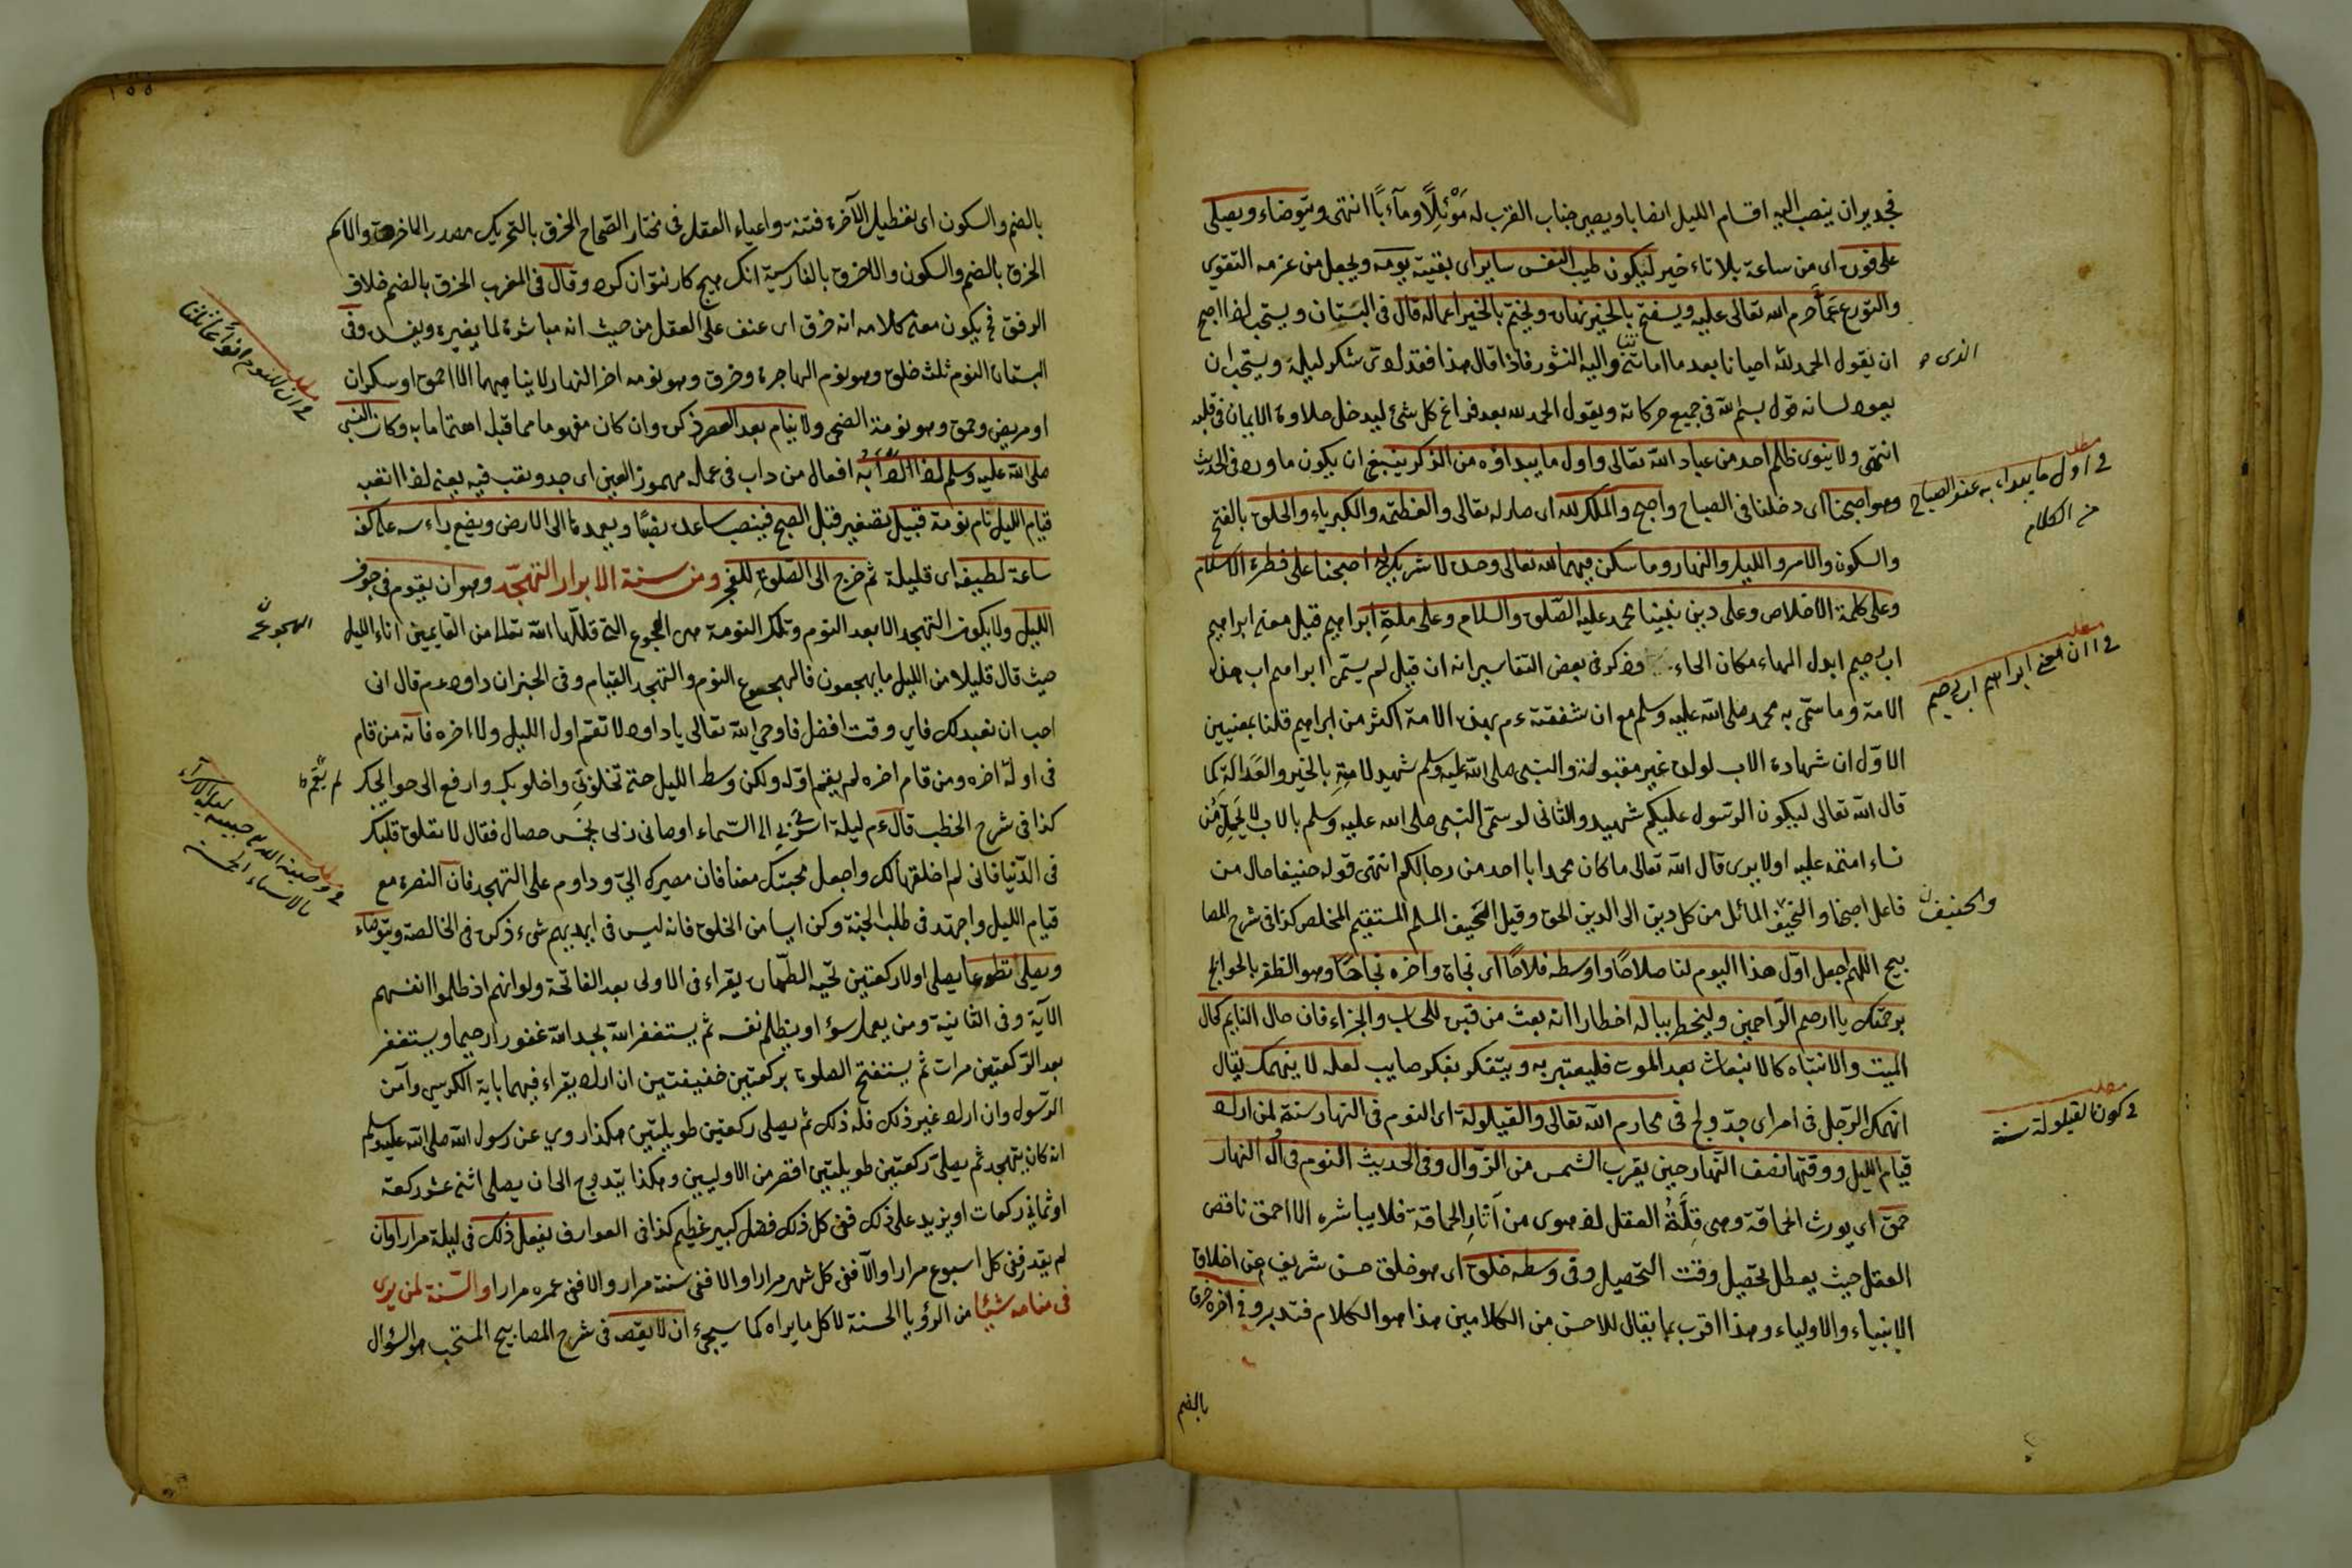 فجدير ان ينصب اليه اقسام الليل انصابا ويصير جناب القرب له مَوْئِلًا ومآبًا انتهى ويتوضاء ويصلى
على فوره اى من ساعة بلا تاءخير ليكون طيب النفس ساير اى بقية يومه ويجعل من عزمه التقوى
والتورع عَمَّا حرم الله تعالى عليه ويفتح بالخير نهاره ويختم بالخير اعماله قال فى البستان ويستحب اذا اصبح
ان يقول الحمد لله احيانا بعد ما اماتنا واليه النشور فاذا قال هذا فقد ادى شكر ليلة ويستحب ان
الذى
يعود لسانه قول بسم الله فى جميع حركاته ويقول الحمد لله بعد فراغ كل شئ ليدخل حلاوة الايمان فى قلبه
انتهى ولا ينوى ظلم احد من عباد الله تعالى واول ما يبداؤه من الذكر ينبغى ان يكون ما ورد فى الحديث
وهو اصبحنا اى دخلنا فى الصباح واصبح والملك لله اى صار له تعالى والعظمة والكبرياء والخلق بالفتح
مطلب
فى اول ما يبداء به عند الصباح
من الكلام
والسكون والامر والليل والنهار وما سكن فيهما لله تعالى وحده لا شريك له اصبحنا على فطرة الاسلام
وعلى كلمة الاخلاص وعلى دين نبينا محمد عليه الصلوة والسلام وعلى ملةِ ابراهيم قيل معنى ابراهيم
اب رحيم ابدل الهاء مكان الحاء وذكر فى بعض التفاسير انه ان قيل لم يسمى ابراهيم اب هذه
مطلب
فى ان معنى ابراهيم اب رحيم
الامة وما سمى به محمد صلى الله عليه وسلم مع ان شفقته عم بهذه الامة اكثر من ابراهيم قلنا بمعنيين
الاوّل ان شهادة الاب لولده غير مقبولة والنبى صلى الله عليه وسلم شهيد لامتِهِ بالخير والعدالة كما
قال الله تعالى ليكون الرسول عليكم شهيد والثانى لو سمى النبى صلى الله عليه وسلم بالاب لا يَحِلُّ من
نساء امته عليه اولا يرى قال الله تعالى ما كان محمد ابا احد من رجالكم انتهى قوله حنيفا حال من
فاعل اصبحنا والحنيف المائل من كل دين الى الدين الحق وقيل الحنيف المسلم المستقيم المخلص كذا فى شرح المصا
والحنيف
بيح اللهم اجعل اوّل هذا اليوم لنا صلاحًا واوسطه فلاحًا اى نجاة واخره نجاحًا وهو الظفر بالحوائج
برحمتك يا ارحم الراحمين وليخطر بباله اخطارا انه بعث من قبره للحساب والجزاء فان حال النايم كحال
الميت والانتباه كالانبعاث بعد الموت فليعتبر به ويتفكر بفكر صايب لعله لا ينهمك يقال
انهمك الرجل فى امر اى جدّ ولج فى محارم الله تعالى والقيلولة اى النوم فى النهار سنة لمن اراد
مطلب
فى كون القيلولة سنة
قيام الليل ووقتها نصف النهار حين يقرب الشمس من الزوال وفى الحديث النوم فى اول النهار
حمق اى يورث الحماقة وهى قِلَّةُ العقل اذ هوى من آثار الحماقة فلا يباشره الا احمق ناقص
العقل حيث يعطل تحصيل وقت التحصيل وفى وسطه خلق اى هو خلق حسن شريف من اخلاق
الانبياء والاولياء وهذا اقرب بما يقال للاحسن من الكلامين هذا هو الكلام فتدبر وفى اخره خرق
بالضم
١٥٥
بالضم والسكون اى تعطيل الآخرة فتنة واعياء العقل فى مختار الصحاح الخرق بالتحريك مصدر الاخرق والاسم
الخرق بالضم والسكون والاخرق بالفارسية انك هيج كار نتوان كرد وقال فى المغرب الخرق بالضم خلاف
الرفق فح يكون معنى كلامه انه خرق اى عنف على العقل من حيث انه مباشرة لما يغيره ويفسده وفى
البستان النوم ثلث خلق وهو نوم الهاجرة وخرق وهو نومه اخر النهار لا ينامهما الا احمق او سكران
مطلب
فى ان للنوم انواعا ثلثا
او مريض وحمق وهو نومة الضحى ولا ينام بعد العصر ذكره وان كان مفهوما مما قبله اهتماما به وكان النبى
صلى الله عليه وسلم اذا ادأبه افعال من داب فى عمله مهموز العين اى جد وتعب فيه يعنى اذا اتعبه
قيام الليل نام نومة قبيل تصغير قبل الصبح فينصب ساعده يقينًا ويعمدها الى الارض ويضع راءسه على كفه
ساعة لطيفة اى قليلة ثم خرج الى الصلوةِ للفجر ومن سنة الابرار التهجّد وهو ان يقوم فى جوف
الليل ولا يكون التهجد الا بعد النوم وتلك النومة هى الهجوع التى قللها الله تعالى من القايمين اناء الليل
الهجوع
حيث قال قليلا من الليل ما يهجعون فالهجوع النوم والتهجد القيام وفى الخبر ان داود عم قال انى
احب ان تعبد لك فاي وقت افضل فاوحى الله تعالى يا داود لا تقم اول الليل ولا اخره فانه من قام
فى اوله اخره ومن قام اخره لم يقم اوّله ولكن وسط الليل حتى تخلو بى واخلو بك وارفع الى حوائجك
لم يَقُم
كذا فى شرح الخطب قال عم ليلة اسرى بى الى السماء اوصانى ربى بخمس خصال فقال لا تعلق قلبك
مطلب
فى وصية الله حبيبه ليلة الاسراء
فى الدنيا فانى لم اخلقها لك واجعل محبتك معنا فان مصيرك الىّ وداوم على التهجد فان النصرة مع
قيام الليل واجتهد فى طلب الجنة وكن ايسا من الخلق فانه ليس فى ايديهم شىء ذكره فى الخالصة ويتوضاء
ويصلى تطوعا يصلى اولا ركعتين تحية الطهارة يقراء فى الاولى بعد الفاتحة ولو انهم اذ ظلموا انفسهم
الآية وفى الثانية ومن يعمل سؤا او يظلم نفسه ثم يستغفر الله يجد الله غفورا رحيما ويستغفر
بعد الركعتين مرات ثم يستفتح الصلوة بركعتين خفيفتين ان اراد يقراء فيهما باية الكرسي وآمن
الرسول وان اراد غير ذلك فله ذلك ثم يصلى ركعتين طويلتين هكذا روي عن رسول الله صلى الله عليه وسلم
انه كان يتهجد ثم يصلى ركعتين طويلتين اقصر من الاوليين وهكذا يتدرج الى ان يصلى اثنى عشر ركعة
او ثمانى ركعات او يزيد على ذلك ففى كل ذلك فضل كبير عظيم كذا فى العوارف يفعل ذلك فى ليلة مرارا وان
لم يقدر ففى كل اسبوع مرارا والا ففى كل شهر مرارا والا ففى سنة مرارا والا ففى عمره مرارا والسنة لمن يرى
فى منامه شيئا من الرؤيا الحسنة لا كل ما يراه كما سيجىء ان لا يقصه فى شرح المصابيح المستحب هو السؤال